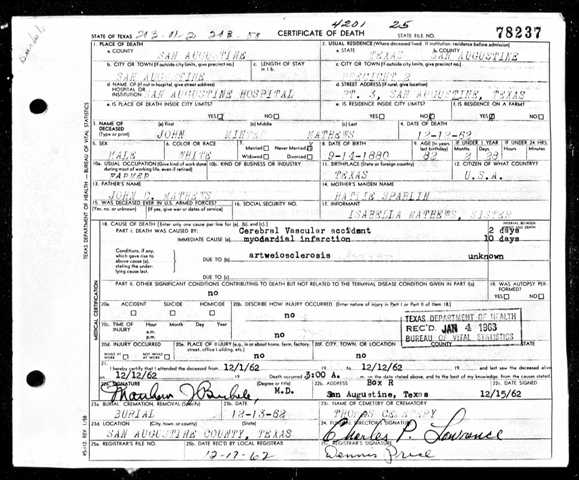 4201 25
STATE OF TEXAS CERTIFICATE OF DEATH STATE FILE NO. 78237
1. PLACE OF DEATH 2. USUAL RESIDENCE (Where deceased lived. If institution: residence before admission)
a. COUNTY a. STATE b. COUNTY
SAN AUGUSTINE TEXAS SAN AUGUSTINE
b. CITY OR TOWN (If outside city limits, give precinct no.) c. LENGTH OF STAY in 1 b. c. CITY OR TOWN (If outside city limits, give precinct no.)
SAN AUGUSTINE PRECINCT
d. NAME OF HOSPITAL OR INSTITUTION SAN AUGUSTINE HOSPITAL d. STREET ADDRESS RT. 3, SAN AUGUSTINE, TEXAS
e. IS PLACE OF DEATH INSIDE CITY LIMITS? e. IS RESIDENCE INSIDE CITY LIMITS? f. IS RESIDENCE ON A FARM?
YES NO YES NO YES NO
3. NAME OF DECEASED (Type or print) (a) First (b) Middle (c) Last 4. DATE OF DEATH
JOHN MATHEWS 12-12-62
5. SEX 6. COLOR OR RACE 7. Married Never Married 8. DATE OF BIRTH 9. AGE (In years last birthday) IF UNDER 1 YEAR IF UNDER 24 HRS.
MALE WHITE Widowed Divorced 9-14-1880 82 2 28
10a. USUAL OCCUPATION (Give kind of work done during most of working life, even if retired) 10b. KIND OF BUSINESS OR INDUSTRY 11. BIRTHPLACE (State or foreign country) 12. CITIZEN OF WHAT COUNTRY?
FARMER TEXAS U.S.A.
13. FATHER'S NAME 14. MOTHER'S MAIDEN NAME
JOHN C. MATHEWS HATTIE SPARLIN
15. WAS DECEASED EVER IN U.S. ARMED FORCES? 16. SOCIAL SECURITY NO. 17. INFORMANT
(Yes, no, or unknown) (If yes, give war or dates of service) ISABELLA MATHEWS, SISTER
18. CAUSE OF DEATH [Enter only one cause per line for (a), (b), and (c).] INTERVAL BETWEEN ONSET AND DEATH
PART I. DEATH WAS CAUSED BY: Cerebral Vascular accident 2 days
IMMEDIATE CAUSE (a) myocardial infarction 10 days
Conditions, if any, which gave rise to above cause (a), stating the underlying cause last. DUE TO (b) artweiosclerosis unknown
DUE TO (c)
PART II. OTHER SIGNIFICANT CONDITIONS CONTRIBUTING TO DEATH BUT NOT RELATED TO THE TERMINAL DISEASE CONDITION GIVEN IN PART I(a) 19. WAS AUTOPSY PERFORMED?
no YES NO
20a. ACCIDENT SUICIDE HOMICIDE 20b. DESCRIBE HOW INJURY OCCURRED. (Enter nature of injury in Part I or Part II of item 18.)
no
20c. TIME OF INJURY Hour Month Day Year a.m. p.m. no
TEXAS DEPARTMENT OF HEALTH
REC'D JAN 4 1963
BUREAU OF VITAL STATISTICS
20d. INJURY OCCURRED 20e. PLACE OF INJURY (e.g., in or about home, farm, factory, street, office building, etc.) 20f. CITY, TOWN, OR LOCATION COUNTY STATE
WHILE AT WORK NOT WHILE AT WORK no no
21. I hereby certify that I attended the deceased from 12/1/62 to 12/12/62 and last saw the deceased alive
12/12/62 Death occurred 3:00 A. m. on the date stated above, and to the best of my knowledge, from the causes stated.
22a. SIGNATURE (Degree or title) 22b. ADDRESS Box R 22c. DATE SIGNED
M.D. San Augustine, Texas 12/15/62
23a. BURIAL, CREMATION, REMOVAL (Specify) 23b. DATE 23c. NAME OF CEMETERY OR CREMATORY
BURIAL 12-13-62 CEMETARY
23d. LOCATION (City, town, or county) (State) 24. FUNERAL DIRECTOR'S SIGNATURE
SAN AUGUSTINE COUNTY, TEXAS Charles P. Lawrence
25a. REGISTRAR'S FILE NO. 25b. DATE REC'D BY LOCAL REGISTRAR 25c. REGISTRAR'S SIGNATURE
12-17-62 Dennis Price
TEXAS DEPARTMENT OF HEALTH – BUREAU OF VITAL STATISTICS
MEDICAL CERTIFICATION